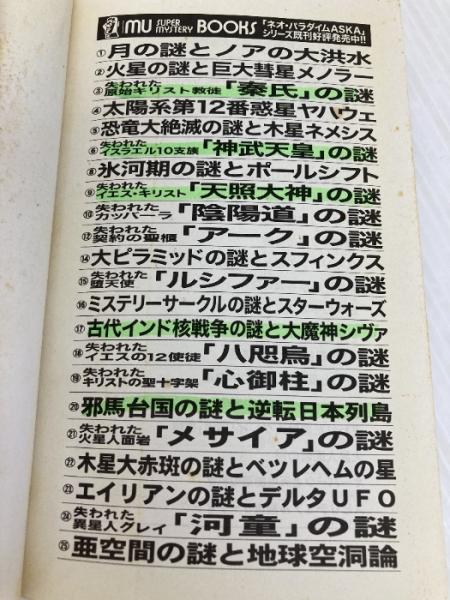 MU SUPER MYSTERY BOOKS 「ネオ・パラダイムASKA」シリーズ既刊好評発売中!!
①月の謎とノアの大洪水
②火星の謎と巨大彗星メノラー
③失われた原始キリスト教徒「秦氏」の謎
④太陽系第12番惑星ヤハウェ
⑤恐竜大絶滅の謎と木星ネメシス
⑥失われたイスラエル10支族「神武天皇」の謎
⑧氷河期の謎とポールシフト
⑨失われたイエス・キリスト「天照大神」の謎
⑩失われたカッバーラ「陰陽道」の謎
⑫失われた契約の聖櫃「アーク」の謎
⑭大ピラミッドの謎とスフィンクス
⑮失われた堕天使「ルシファー」の謎
⑯ミステリーサークルの謎とスターウォーズ
⑰古代インド核戦争の謎と大魔神シヴァ
⑱失われたイエスの12使徒「八咫烏」の謎
⑲失われたキリストの聖十字架「心御柱」の謎
⑳邪馬台国の謎と逆転日本列島
㉑失われた火星人面岩「メサイア」の謎
㉒木星大赤斑の謎とベツレヘムの星
㉓エイリアンの謎とデルタUFO
㉔失われた異星人グレイ「河童」の謎
㉕亜空間の謎と地球空洞論